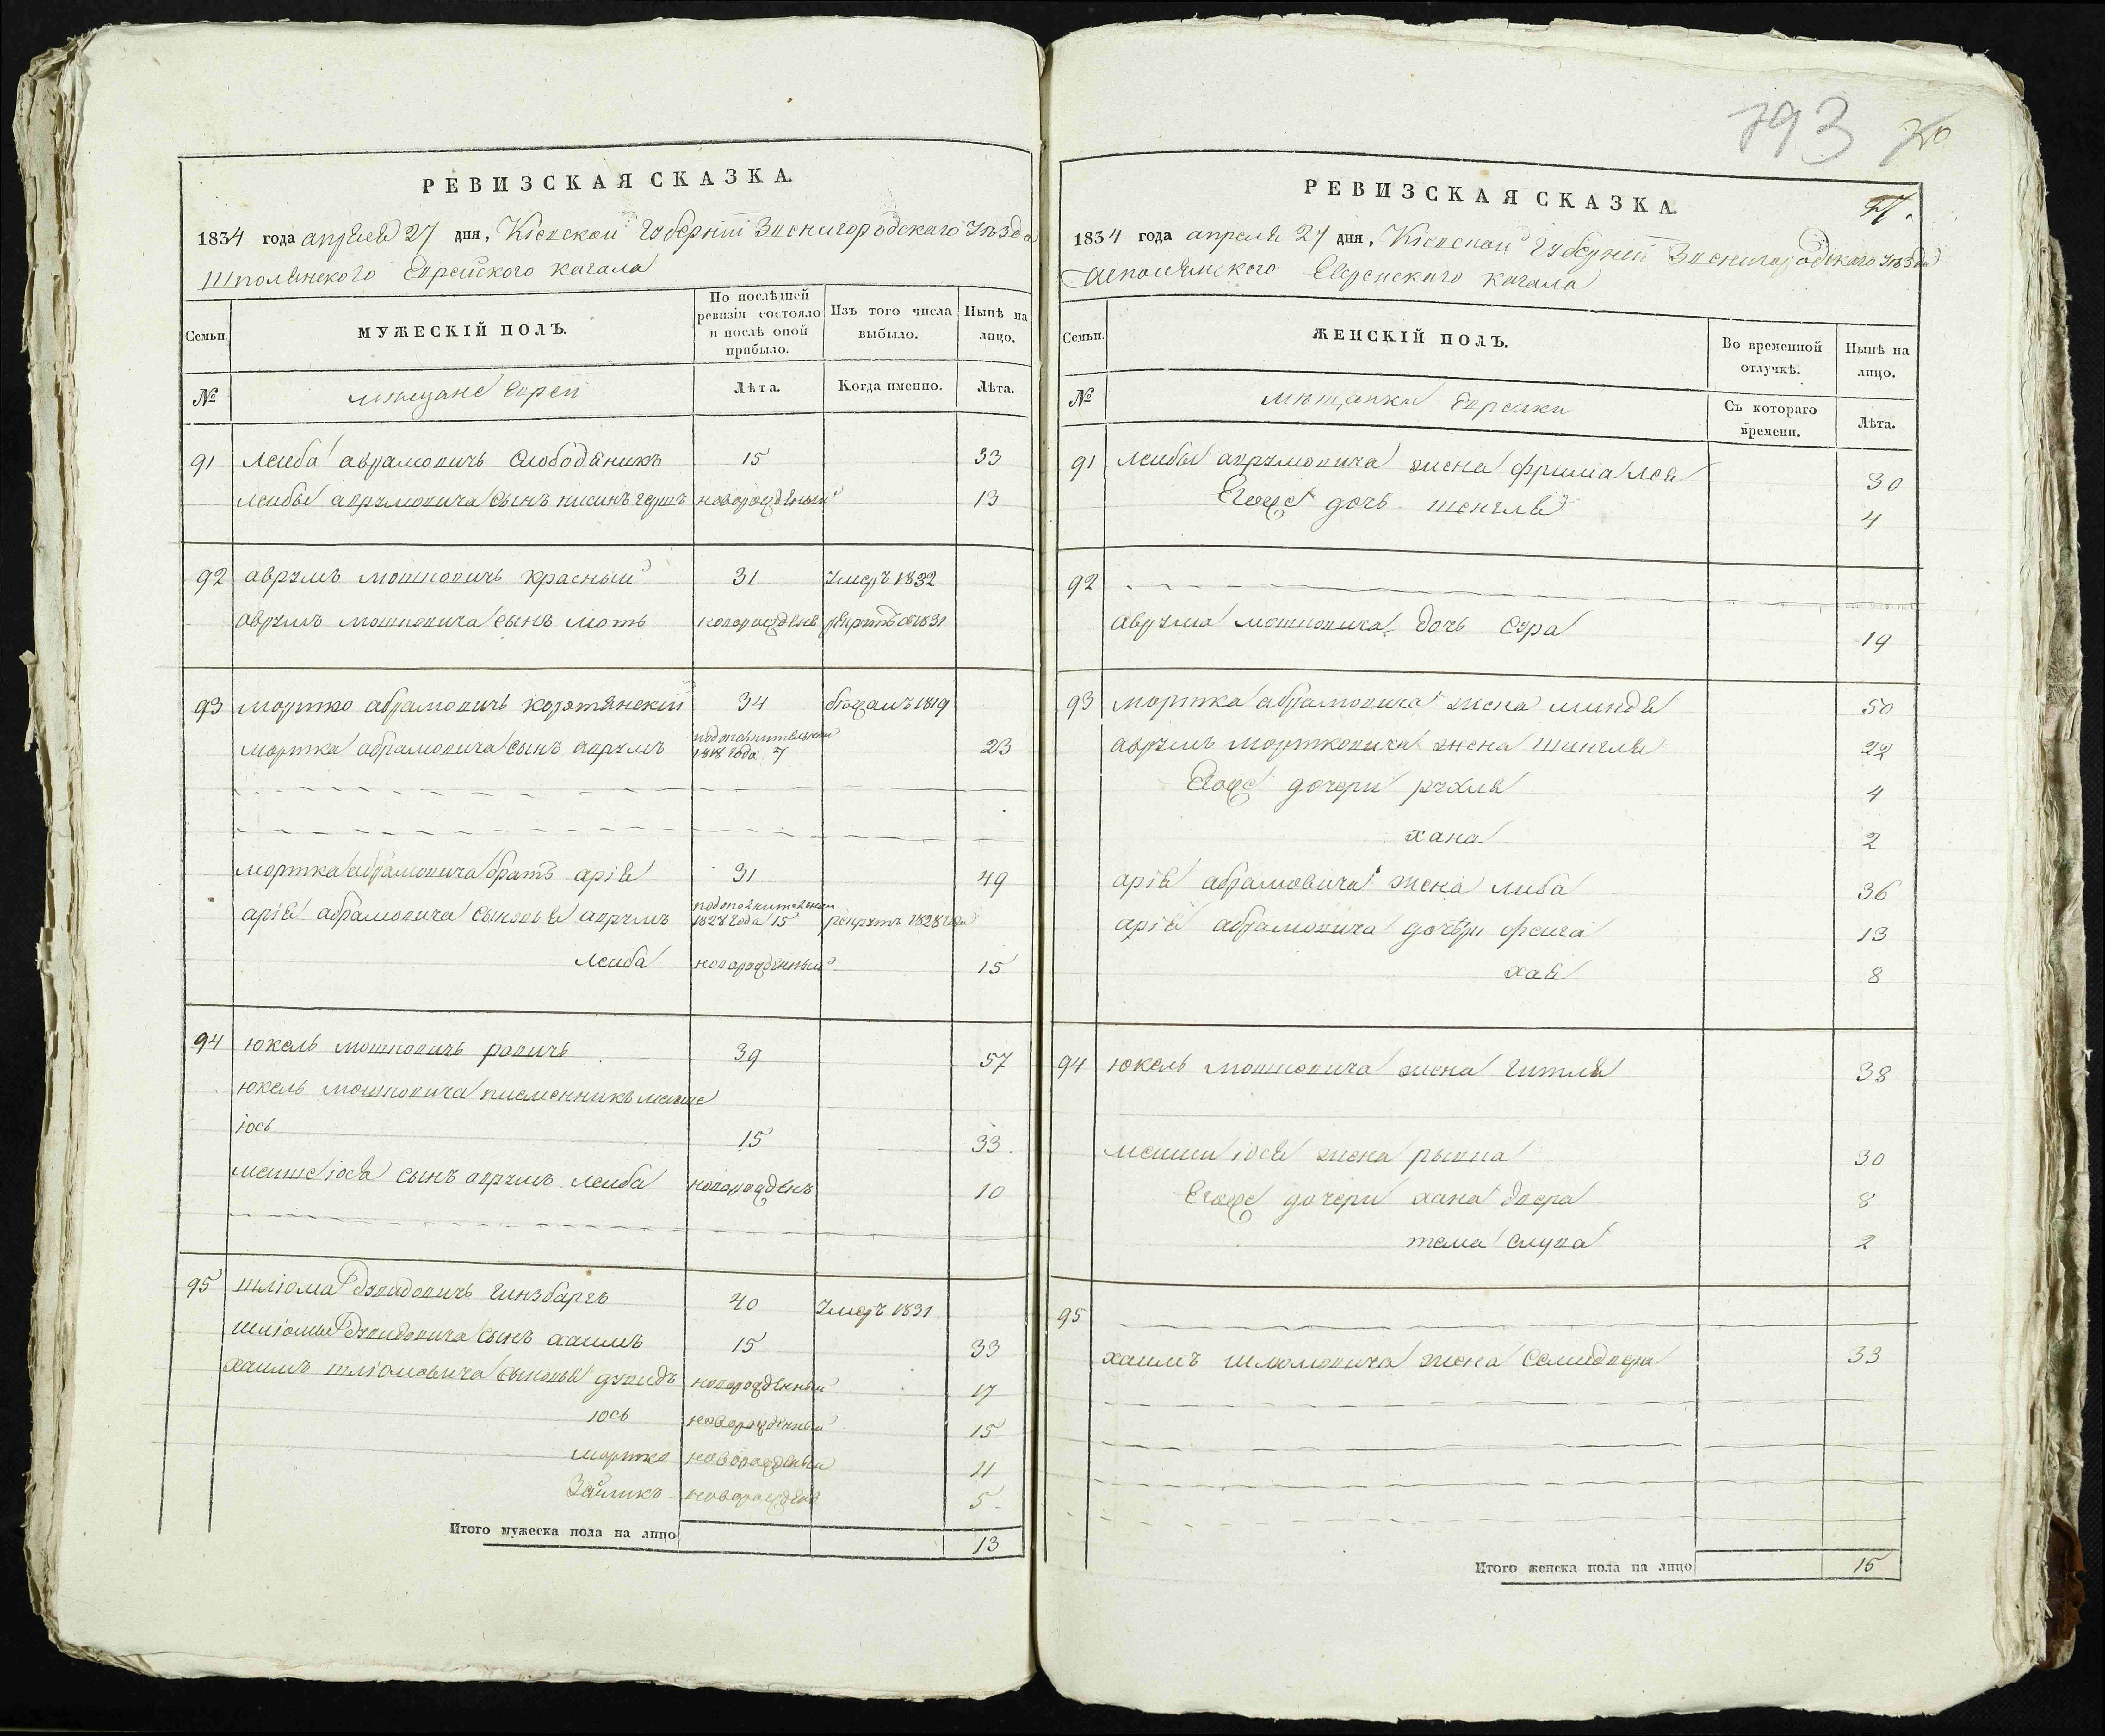 РЕВИЗСКАЯ СКАЗКА.
1834 года апреля 27 дня, Кіевской Губерніи Звенигородского Уѣзда
Шполянского Еврейского кагала
Семьи
МУЖЕСКІЙ ПОЛЪ.
По послѣдней ревизіи состояло и послѣ оной прибыло.
Изъ того числа выбыло.
Нынѣ на лицо.
№
мѣщане Евреи
Лѣта.
Когда именно.
Лѣта.
91 Леиба аврамовичъ Слободяникъ 15 33
леибы аврумовича сынъ нисинъ гершъ новорожденый 13
92 аврумъ мошковичъ красный 31 Умеръ 1832
аврумъ мошковича сынъ мотъ новорожденъ рекрутъ 1831
93 мортко абрамовичъ 34 1819
мортка абрамовича сынъ аврумъ 1818 года 7 23
мортка абрамовича братъ арія 31 49
арія абрамовича сыновья аврумъ 1828 года 15 рекрутъ 1828 года
леиба новорожденный 15
94 юкель мошковичъ ровичъ 39 57
юкель мошковича племенникъ меише
іось 15 33.
меише іося сынъ аврумъ леиба новорожденъ 10
95 шліома Дувидовичъ гинзбаргъ 40 Умеръ 1831
шліомы Дувидовича сынъ хаимъ 15 33
хаимъ шліомовича сыновья дувидъ новорожденный 17
юсь новорожденный 15
мортко новорожденый 11
Зейликъ новорожденъ 5
Итого мужеска пола на лицо 13
793
РЕВИЗСКАЯ СКАЗКА.
1834 года апреля 27 дня, Кіевской Губерніи Звенигородского Уѣзда
Шполянского Еврейского кагала
Семьи.
ЖЕНСКІЙ ПОЛЪ.
Во временной отлучкѣ.
Нынѣ на лицо.
№
мѣщанки Еврейки
Съ котораго времени.
Лѣта.
91 Леибы аврумовича жена фрима лея 30
Егоже дочь шенгля 4
92
аврума мошковича дочь сура 19
93 мортка абрамовича жена миндя 50
аврумъ мортковича жена Шингля 22
Егоже дочери рухля 4
хана 2
арія абрамовича жена либа 36
арія абрамовича дочери феига 13
хая 8
94 юкель мошковича жена Гитля 38
меиши іося жена рывка 30
Егоже дочери хана двера 8
тема 2
95
хаимъ шлюмовича жена 33
Итого женска пола на лицо 15